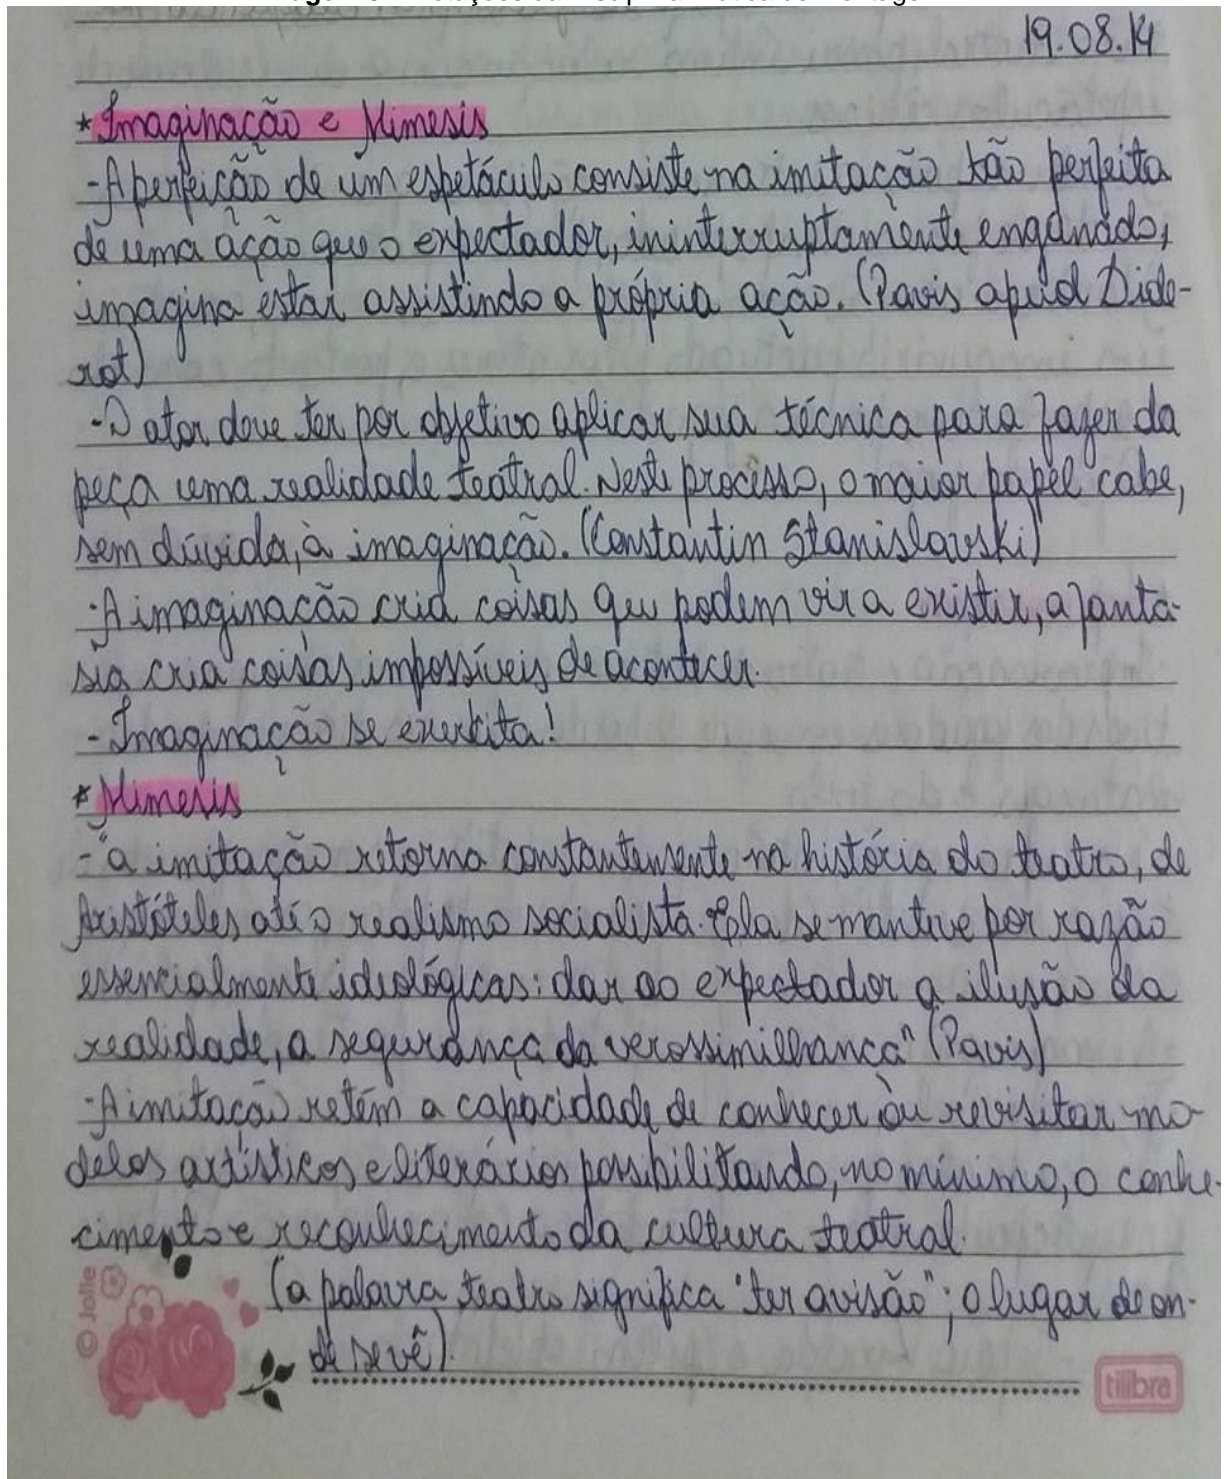 19.08.14
* Imaginação e Mimesis
- A perfeição de um espetáculo consiste na imitação tão perfeita
de uma ação que o expectador, ininterruptamente enganado,
imagina estar assistindo a própria ação. (Pavis apud Dide-
rot)
- O ator deve ter por objetivo aplicar sua técnica para fazer da
peça uma realidade teatral. Neste processo, o maior papel cabe,
sem dúvida, à imaginação. (Constantin Stanislavski)
- A imaginação cria coisas que podem vir a existir, a fanta-
sia cria coisas impossíveis de acontecer.
- Imaginação se exercita!
* Mimesis
- "a imitação retorna constantemente na história do teatro, de
Aristóteles até o realismo socialista. Ela se manteve por razão
essencialmente ideológicas: dar ao expectador a ilusão da
realidade, a segurança da verossimilhança" (Pavis)
- A imitação retém a capacidade de conhecer ou revisitar mo-
delos artísticos e literários possibilitando, no mínimo, o conhe-
cimento e reconhecimento da cultura teatral.
(a palavra teatro significa "ter a visão"; o lugar de on-
de se vê).
© Jolie
tilibra